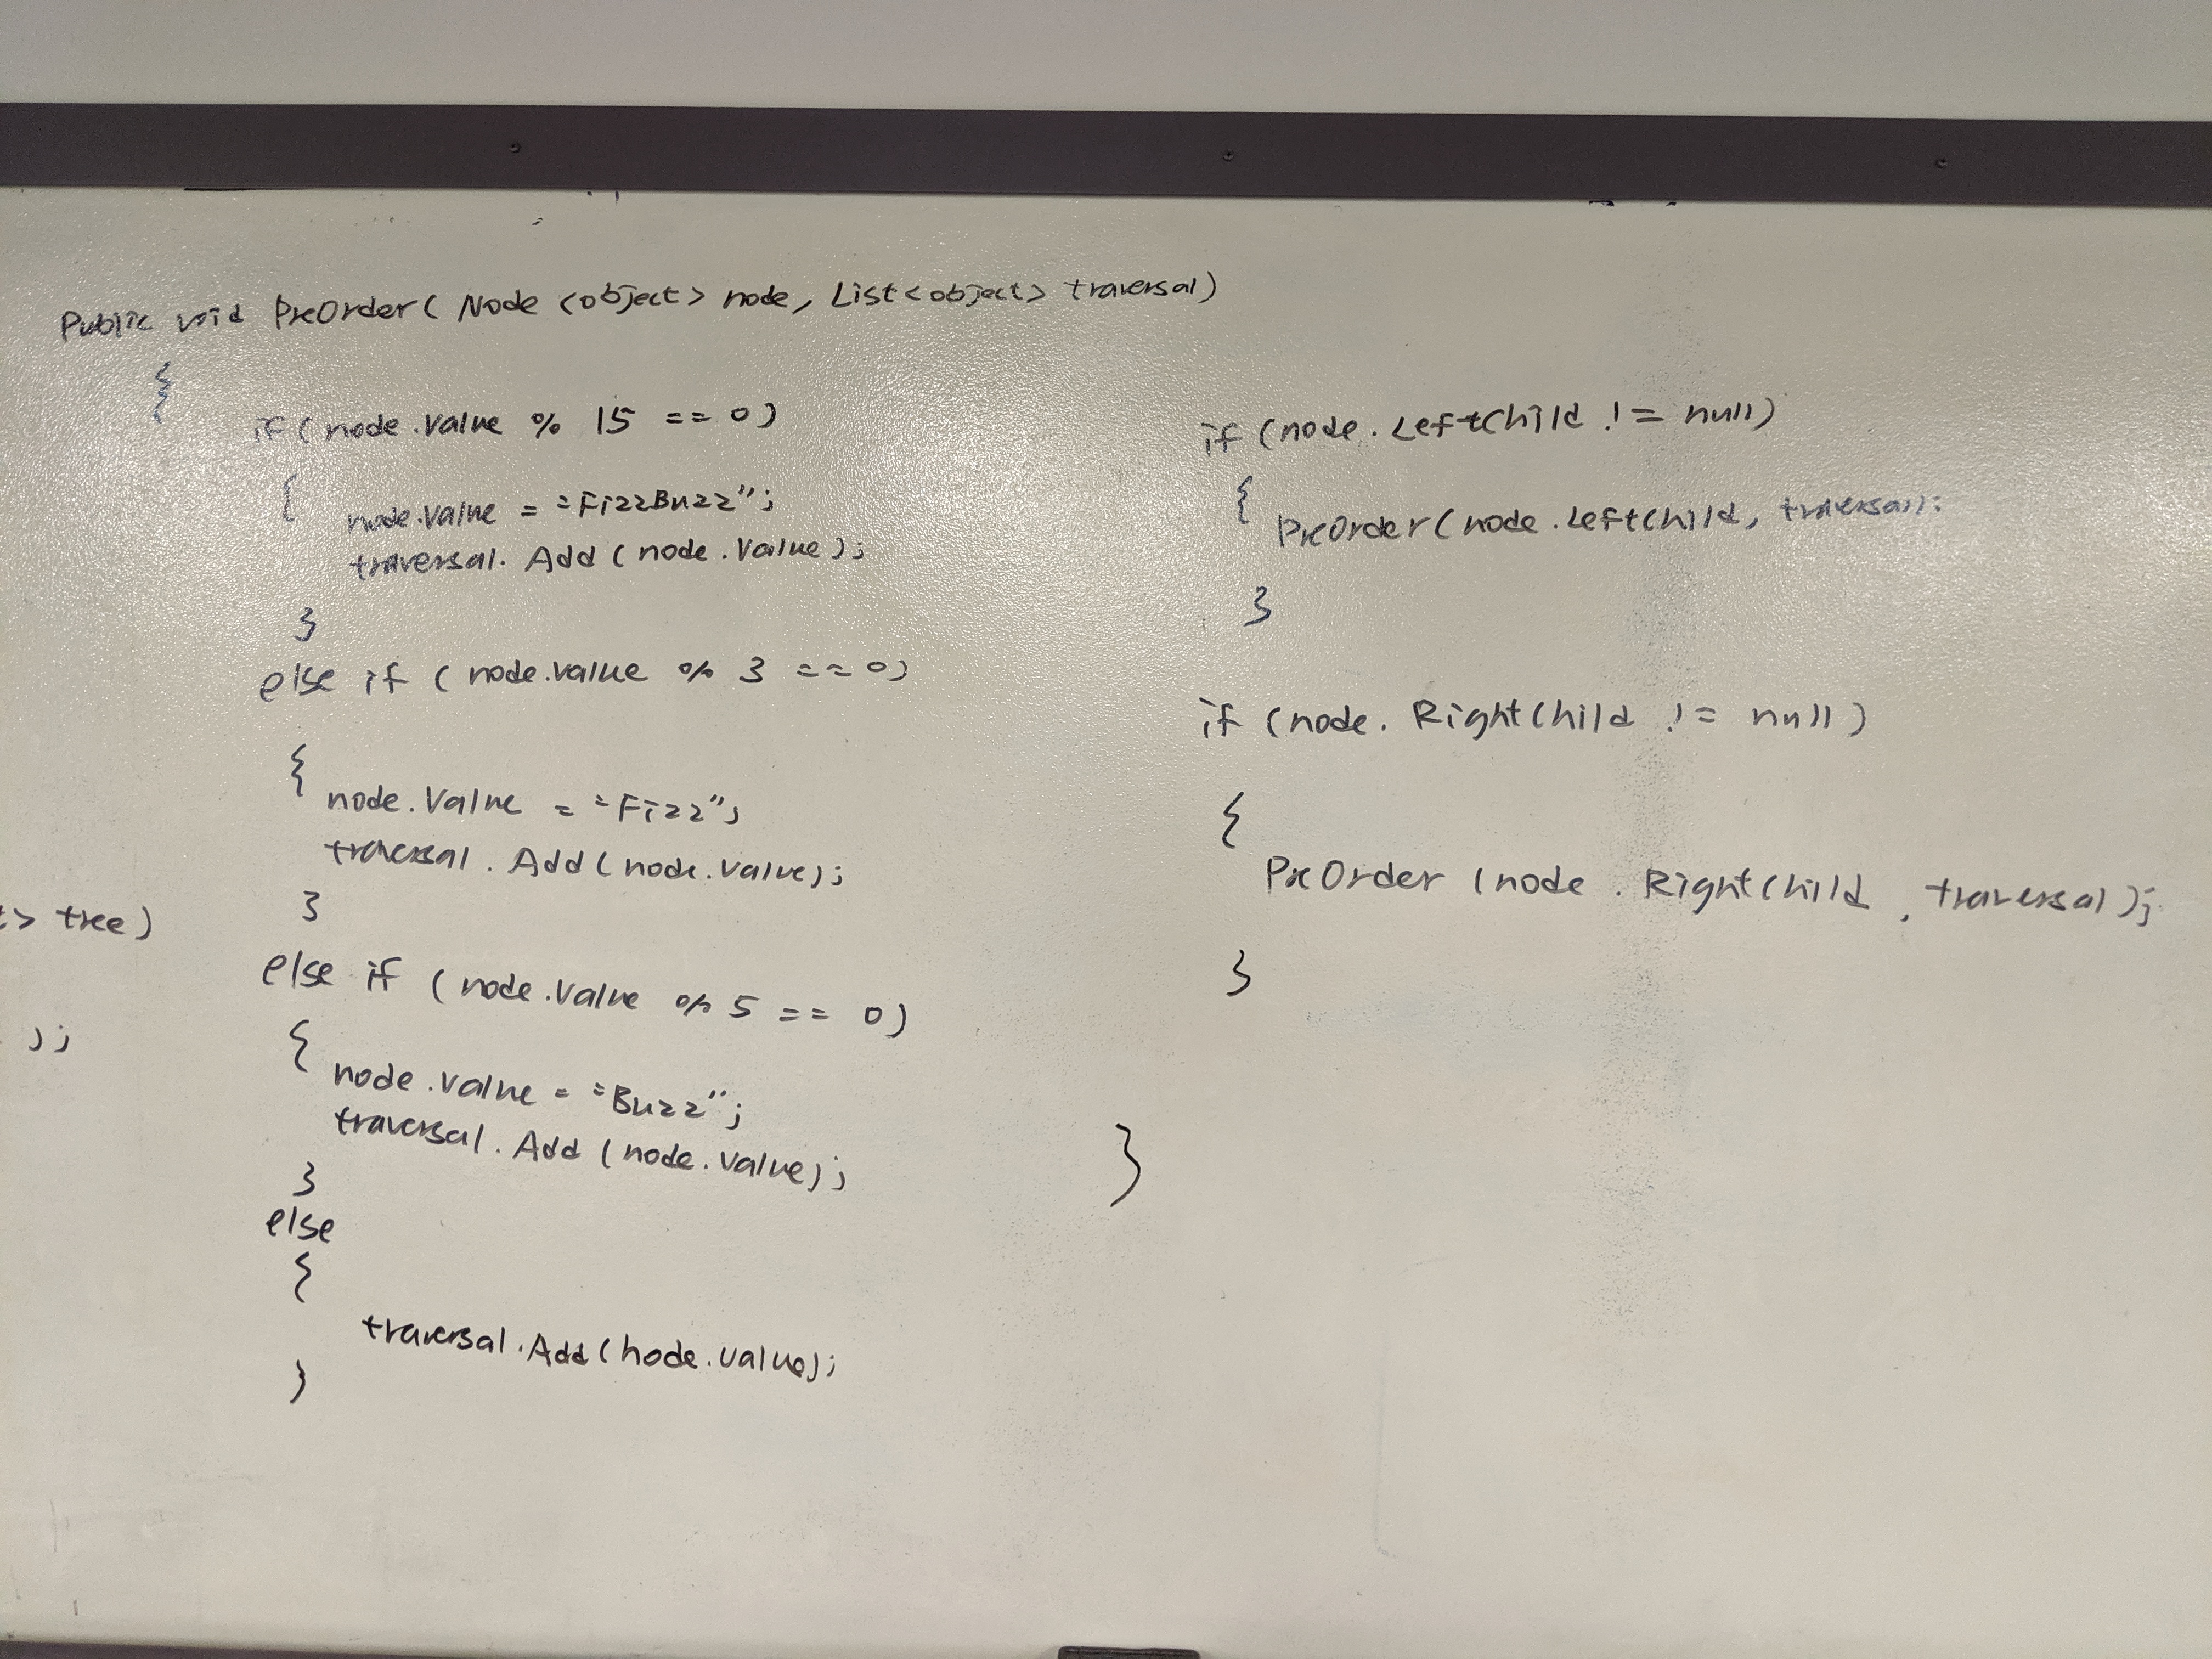 Public void PreOrder( Node <object> node, List<object> traversal)
{
if (node.Value % 15 == 0)
{
node.Value = "FizzBuzz";
traversal.Add (node.Value);
}
else if ( node.value % 3 == 0)
{
node.Value = "Fizz";
traversal.Add (node.Value);
}
else if ( node.Value % 5 == 0)
{
node.Value = "Buzz";
traversal.Add (node.Value);
}
else
{
traversal.Add (node.value);
}
if (node.LeftChild != null)
{
PreOrder (node.LeftChild, traversal);
}
if (node.RightChild != null)
{
PreOrder (node.RightChild, traversal);
}
}
> tree)
);